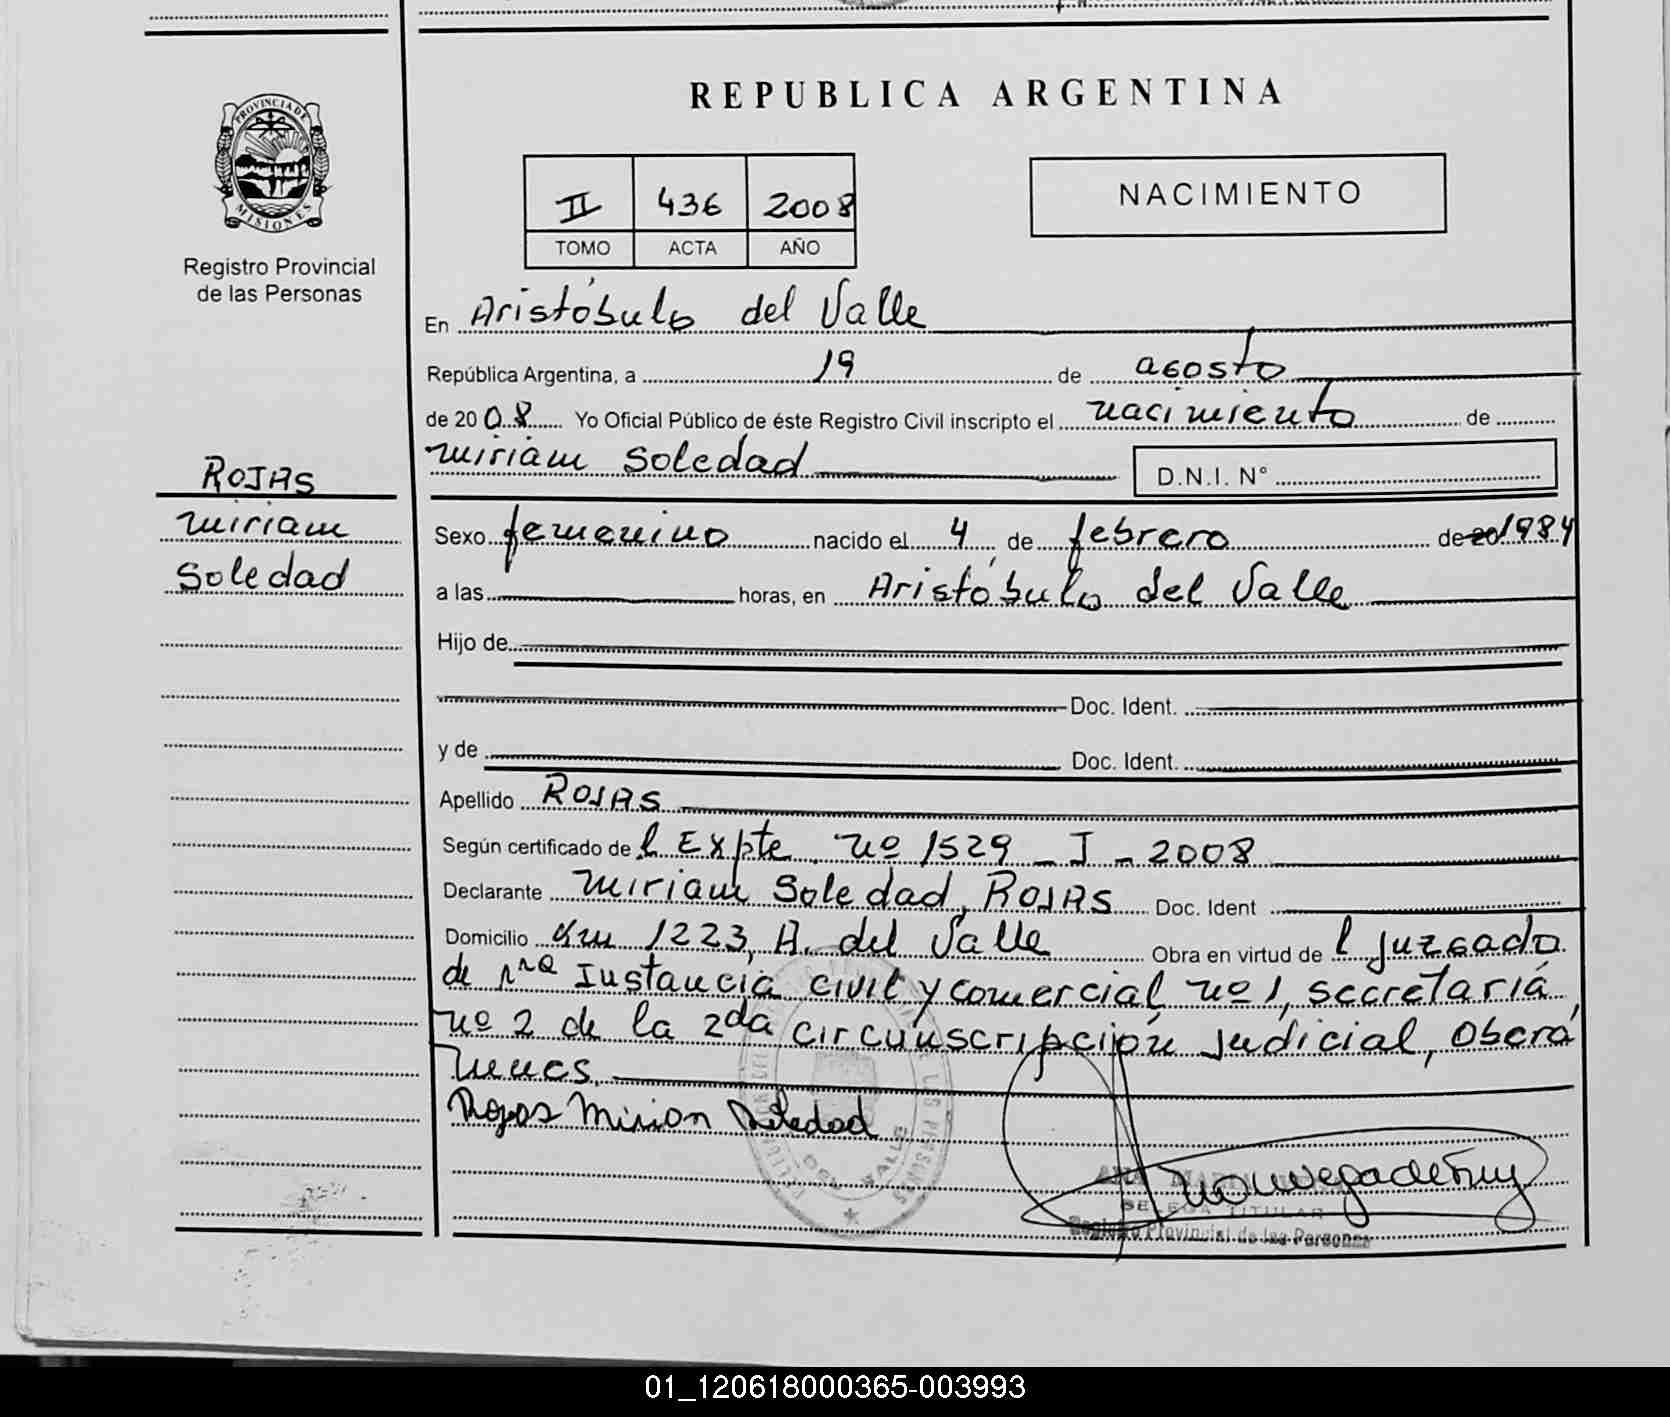 REPUBLICA ARGENTINA
PROVINCIA DE MISIONES
Registro Provincial
de las Personas
II 436 2008
TOMO ACTA AÑO
NACIMIENTO
En Aristóbulo del Valle
República Argentina, a 19 de agosto
de 2008 Yo Oficial Público de éste Registro Civil inscripto el nacimiento de
miriam Soledad D.N.I. N°
ROJAS
miriam
Soledad
Sexo femenino nacido el 4 de febrero de 20 1984
a las horas, en Aristóbulo del Valle
Hijo de
Doc. Ident.
y de Doc. Ident.
Apellido ROJAS
Según certificado del Expte. nº 1529 - I - 2008
Declarante miriam Soledad, ROJAS Doc. Ident
Domicilio Km 1223, A. del Valle Obra en virtud del juzgado
de 1ra Instancia civil y comercial nº 1, secretaria
nº 2 de la 2da circunscripción judicial, Oberá
Rojas Mirian Soledad
ANA
DELEGADA TITULAR
Registro Provincial de las Personas
01_120618000365-003993